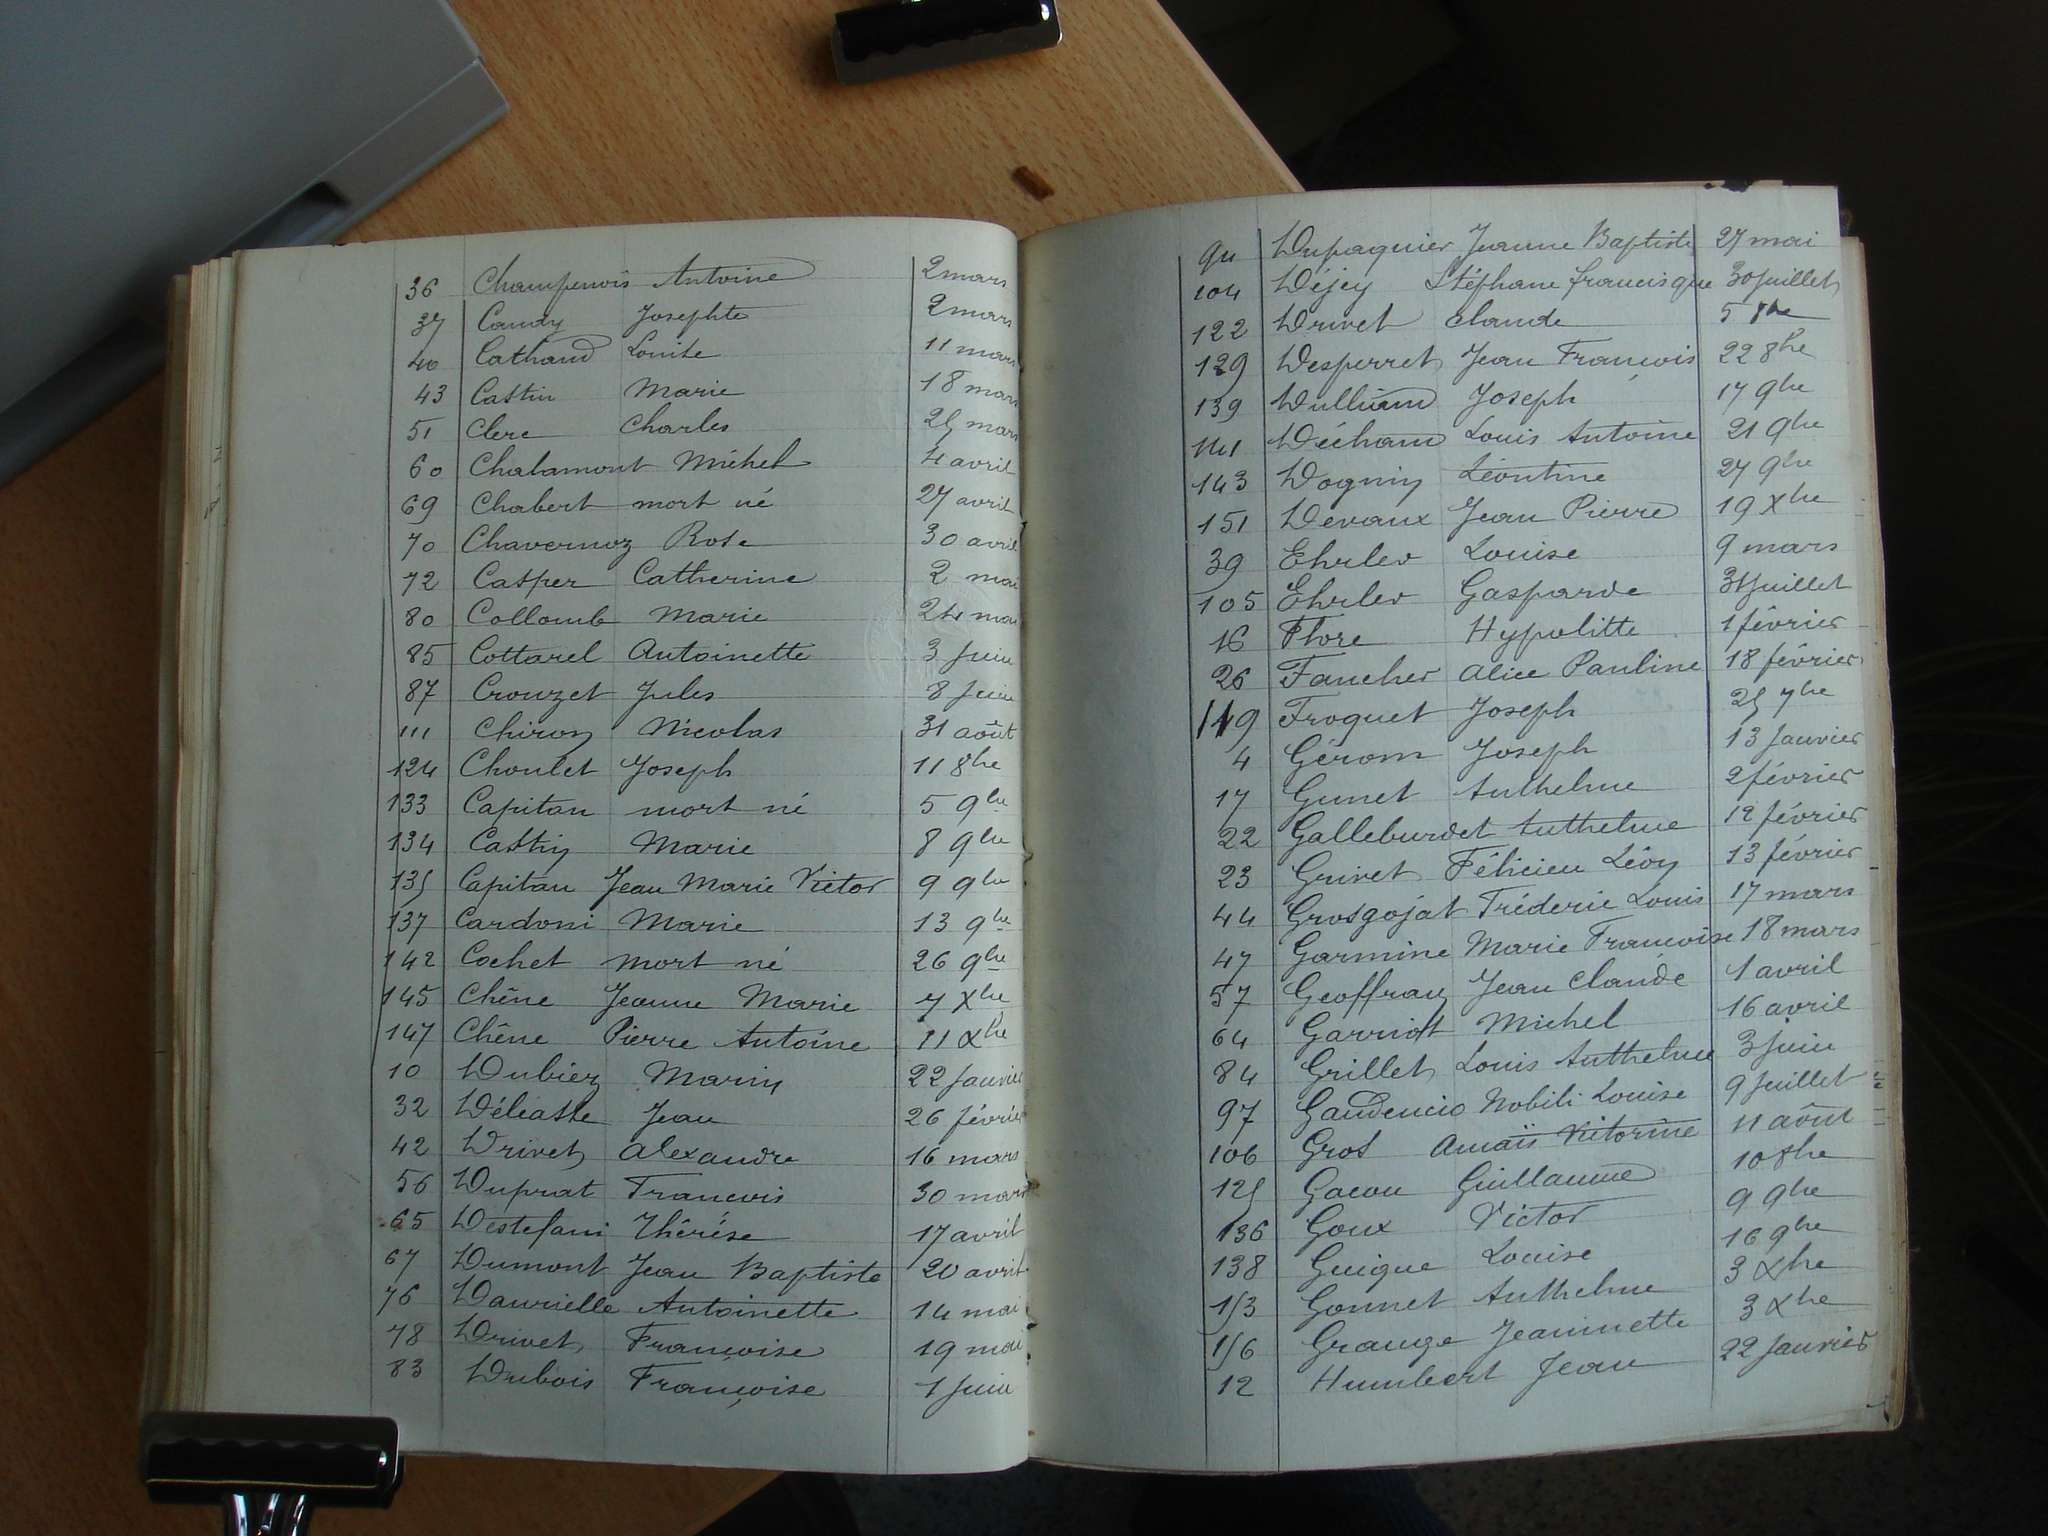 36 Champenois Antoine 2 mars
37 Candy Josephte 2 mars
40 Cathaud Louise 11 mars
43 Castin Marie 18 mars
51 Clerc Charles 25 mars
60 Chalamont Michel 4 avril
69 Chabert mort né 27 avril
70 Chavernoz Rose 30 avril
72 Casper Catherine 2 mai
80 Collomb Marie 24 mai
85 Cottarel Antoinette 3 Juin
87 Crouzet Jules 8 Juin
111 Chiron Nicolas 31 août
124 Choulet Joseph 11 8bre
133 Capitan mort né 5 9bre
134 Castin Marie 8 9bre
135 Capitan Jean Marie Victor 9 9bre
137 Cardoni Marie 13 9bre
142 Cochet mort né 26 9bre
145 Chêne Jeanne Marie 7 Xbre
147 Chêne Pierre Antoine 11 Xbre
10 Dubiez Marin 22 Janvier
32 Jean 26 février
42 Drivet Alexandre 16 mars
56 Duprat Francois 30 mars
65 Destefani Thérèse 17 avril
67 Dumont Jean Baptiste 20 avril
76 Daurielle Antoinette 14 mai
78 Drivet Françoise 19 mai
83 Dubois Françoise 1 Juin
94 Dupaquier Jeanne Baptiste 27 mai
104 Déjey Stéphane francisque 30 Juillet
122 Drivet Claude 5 8bre
129 Desperret Jean Francois 22 8bre
139 Dulliand Joseph 17 9bre
141 Louis Antoine 21 9bre
143 Dognin Léontine 27 9bre
151 Devaux Jean Pierre 19 Xbre
39 Ehrler Louise 9 mars
105 Ehrler Gasparde 31 Juillet
16 Flore Hypolitte 1 février
26 Faucher Alice Pauline 18 février
119 Froquet Joseph 25 7bre
4 Gérom Joseph 13 Janvier
17 Gunet Anthelme 2 février
22 Galleburdet Anthelme 12 février
23 Grivet Félicien Lévy 13 février
44 Grosgojat Fréderic Louis 17 mars
47 Garmine Marie Francoise 18 mars
57 Geoffray Jean Claude 1 avril
64 Garriot Michel 16 avril
84 Grillet Louis Anthelme 3 Juin
97 Gaudencio Nobili Louise 9 Juillet
106 Gros Amaïs Victorine 11 août
125 Gacon Guillaume 10 8bre
136 Goux Victor 9 9bre
138 Guigue Louise 16 9bre
153 Gonnet Anthelme 3 Xbre
156 Grange Jeannette 3 Xbre
12 Humbert Jean 22 Janvier